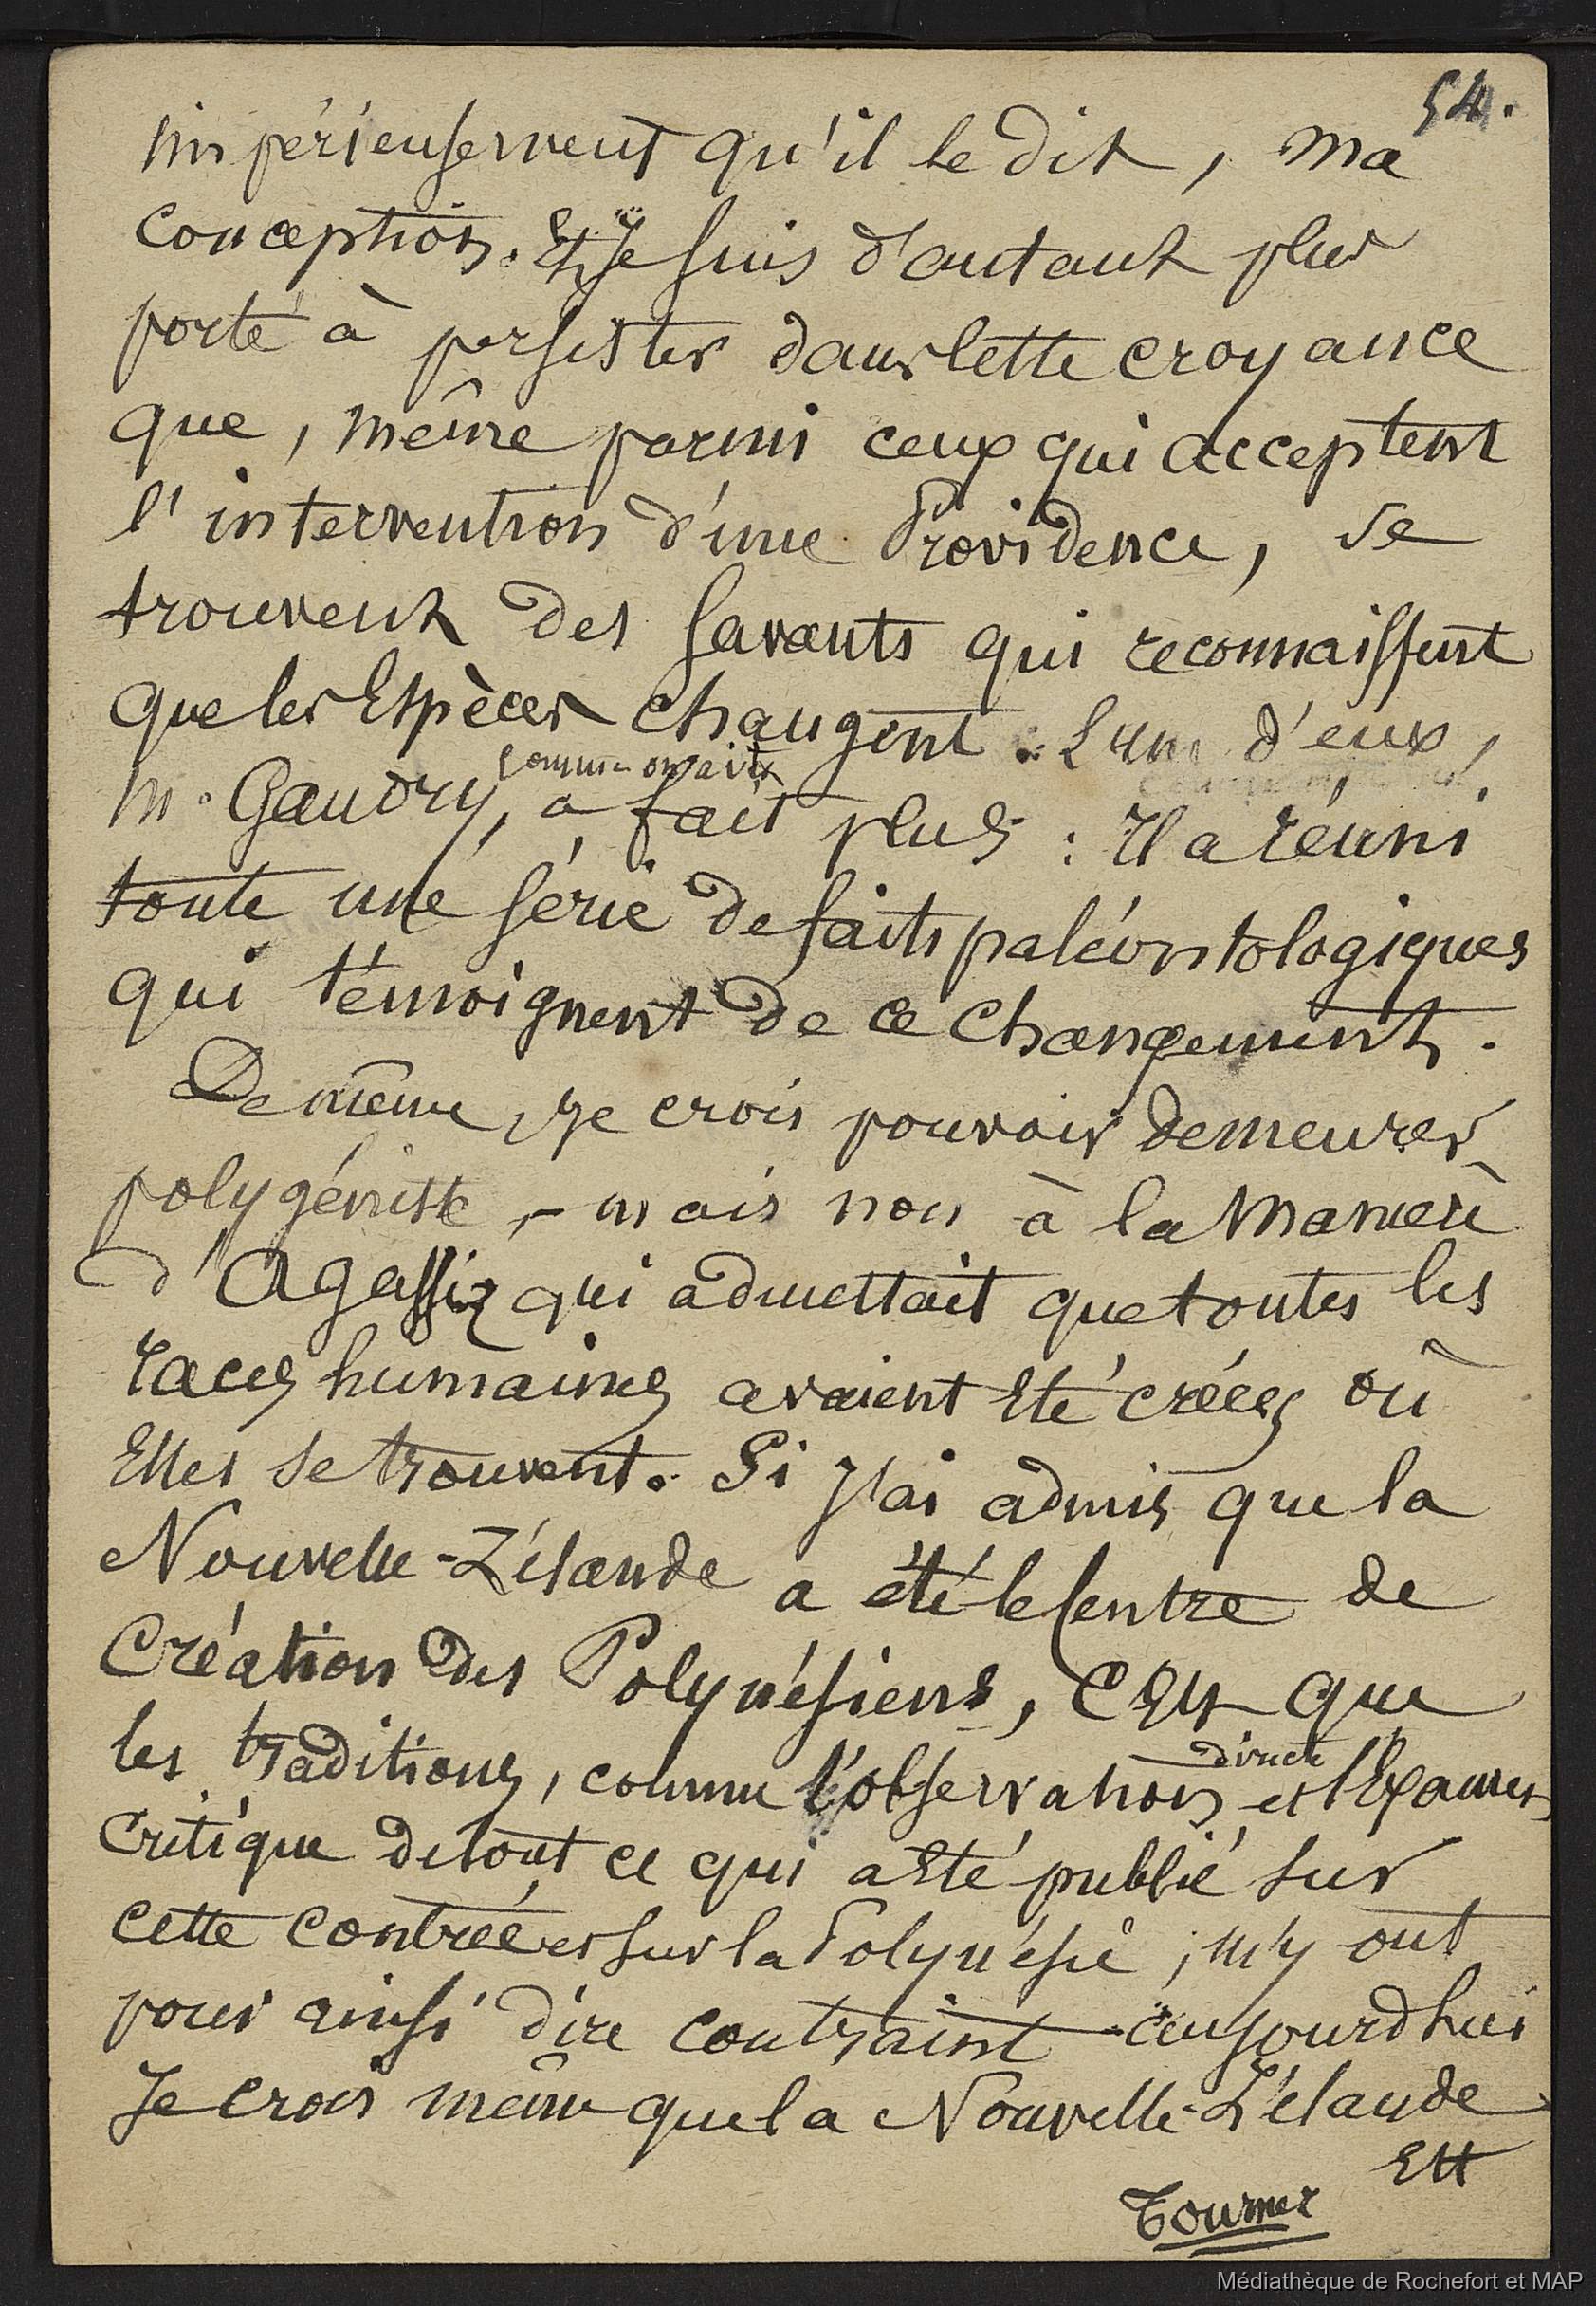 54.
impérieusement qu'il le dit, ma
conception. Et Je suis d'autant plus
porté à persister dans cette croyance
que, même parmi ceux qui acceptent
l'intervention d'une Providence, se
trouvent des savants qui reconnaissent
que les Espèces changent. L'un d'eux,
comme on sait
M. Gaudry, a fait plus : Il a réuni
toute une série de faits paléontologiques
qui témoignent de ce changement.
De même, je crois pouvoir demeurer
polygéniste, - mais non à la manière
d'Agassiz qui admettait que toutes les
races humaines avaient été créées où
Elles se trouvent. Si j'ai admis que la
Nouvelle-Zélande a été le Centre de
Création des Polynésiens, c'est que
directe
les traditions, comme l'observation et l'Examen
critique de tout ce qui a été publié sur
cette contrée et sur la Polynésie, m'y ont
pour ainsi dire contraint - aujourd'hui
Je crois même que la Nouvelle-Zélande
Est
Tournez
Médiathèque de Rochefort et MAP